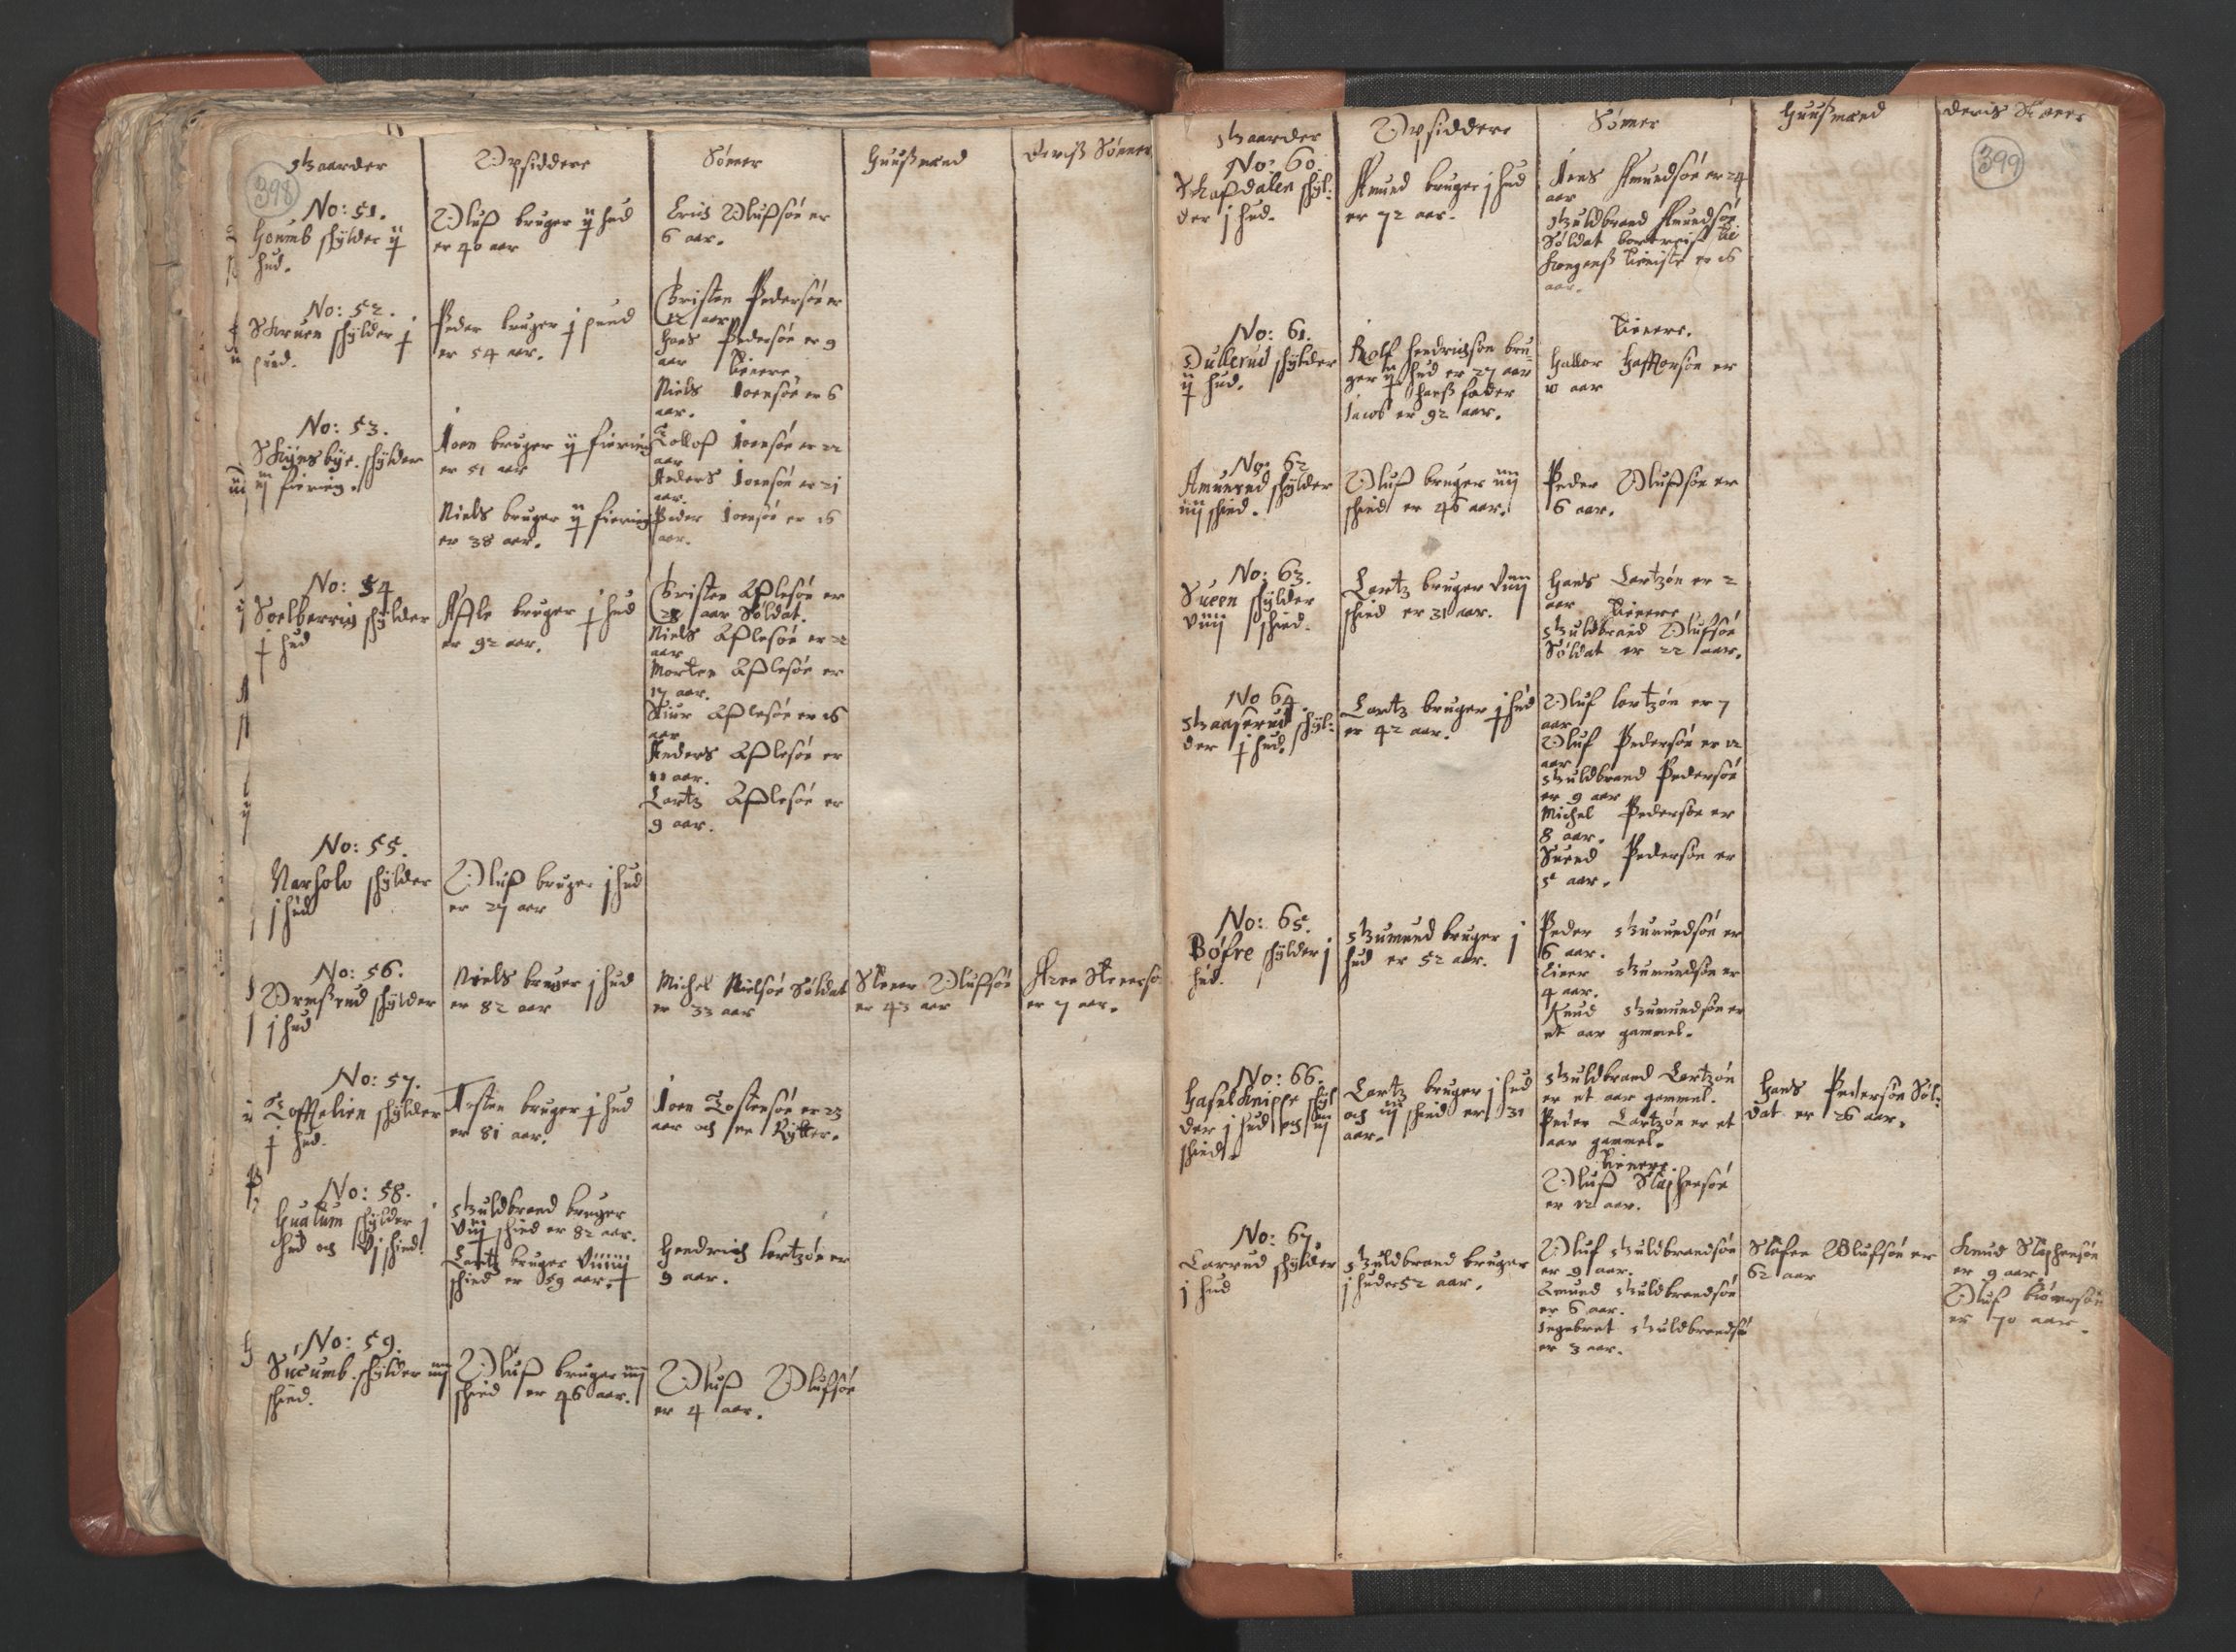 398
Gaarder
Opsiddere
Sønner
Huußmænd
Deriß Sønner
No: 51.
schylder ij
hud.
Oluff bruger ij hud
er 40 aar
Erich Oluffsøn er
6 aar.
No: 52.
Skruen schylder j
pund.
Peder bruger j pund
er 54 aar.
Christen Pedersøn er
12 aar
Hans Pedersøn er 9
aar
Tienere,
Niels Joensøn er 6
aar.
No: 53.
schylder
iij fiering.
Joen bruger ij fiering
er 51 aar
Niels bruger ij fiering
er 38 aar.
Tollof Joensøn er 22
aar
Anders Joensøn er 21
aar.
Peder Joensøn er 16
aar.
No: 54
Soelberrig schylder
j hud
Affle bruger j hud
er 92 aar.
Christen Afflesøn er
28 aar Soldat.
Niels Afflesøn er 22
aar
Morten Afflesøn er
17 aar.
Stiur Afflesøn er 16
aar
Anders Afflesøn er
11 aar.
Lartz Afflesøn er
9 aar.
No: 55.
Narholo schylder
j hud
Oluff bruger j hud
er 27 aar
No: 56.
Ormßrud schylder
j hud
Niels bruger j hud
er 82 aar
Michel Nielsøn Soldat
er 33 aar
Stener Oluffsøn
er 43 aar
Aren Stenersø
er 7 aar.
No: 57.
Toffelien schylder
j hud.
Tosten bruger j hud
er 81 aar.
Joen Tostensøn er 23
aar och en Rytter.
No: 58.
Hualum schylder j
hud och vj schind.
Gulbrand bruger
viij schind er 82 aar.
Lartz bruger
schind er 59 aar.
Hendrich Lartzøn er
9 aar.
No: 59.
Sucumb schylder iiij
schind.
Oluff bruger iiij
schind er 46 aar.
Oluff Olufsøn
er 4 aar.
399
Gaarder
Opsiddere
Sønner
Huußmænd
Deris Sønner
No: 60
schyl-
der j hud.
Amund bruger j hud
er 72 aar.
Jens Amundsøn er 24
aar
Guldbrand Amundsøn
Soldat bortreist
Kongenß tieniste er 16
aar.
No: 61.
Dullerud schylder
ij hud.
Rolf Hendrichsøn bru-
ger ij hud er 27 aar
hanß fader
Jacob er 92 aar.
Tienere.
Halvor Haffvorsøn er
10 aar
No: 62
Amunrud schylder
iiij schind.
Oluff bruger iiij
schind er 46 aar.
Peder Olufsøn er
6 aar.
No: 63.
Sueen schylder
viiij schind.
Lartz bruger viiij
schind er 31 aar.
Hans Lartzøn er 2
aar
Tienere
Guldbrand Olufsøn
Soldat er 22 aar.
No 64.
Gaaserud schyl-
der j hud.
Lartz bruger j hud
er 42 aar.
Oluf Lartzøn er 7
aar
Oluf Pedersøn er 12
aar
Guldbrand Pedersøn
er 9 aar
Michel Pedersøn er
8 aar.
Suend Pedersøn er
5 aar.
No: 65.
Bøfre schylder j
hud.
Gumund bruger j
hud er 52 aar.
Peder Gumundsøn er
6 aar.
Einer Gumundsøn er
4 aar.
Knud Gumundsøn er
et aar gammel.
No: 66.
Haselknippe schyl
der j hud och iij
schind.
Lartz bruger j hud
och iij schind er 31
aar.
Guldbrand Lartzøn
er et aar gammel.
Peder Lartzøn er et
aar gammel.
Tienere.
Oluff Staphensøn
er 12 aar.
Hans Pedersøn Sol-
dat er 26 aar.
No: 67.
Larrud schylder
j hud
Guldbrand bruger
j hud er 52 aar.
Oluf Guldbrandsøn
er 9 aar.
Amund Guldbrandsøn
er 6 aar.
Ingebret Guldbrandsø
er 3 aar.
Stafen Olufsøn er
62 aar
Knud Staphensøn
er 9 aar.
Oluf
er 70 aar.